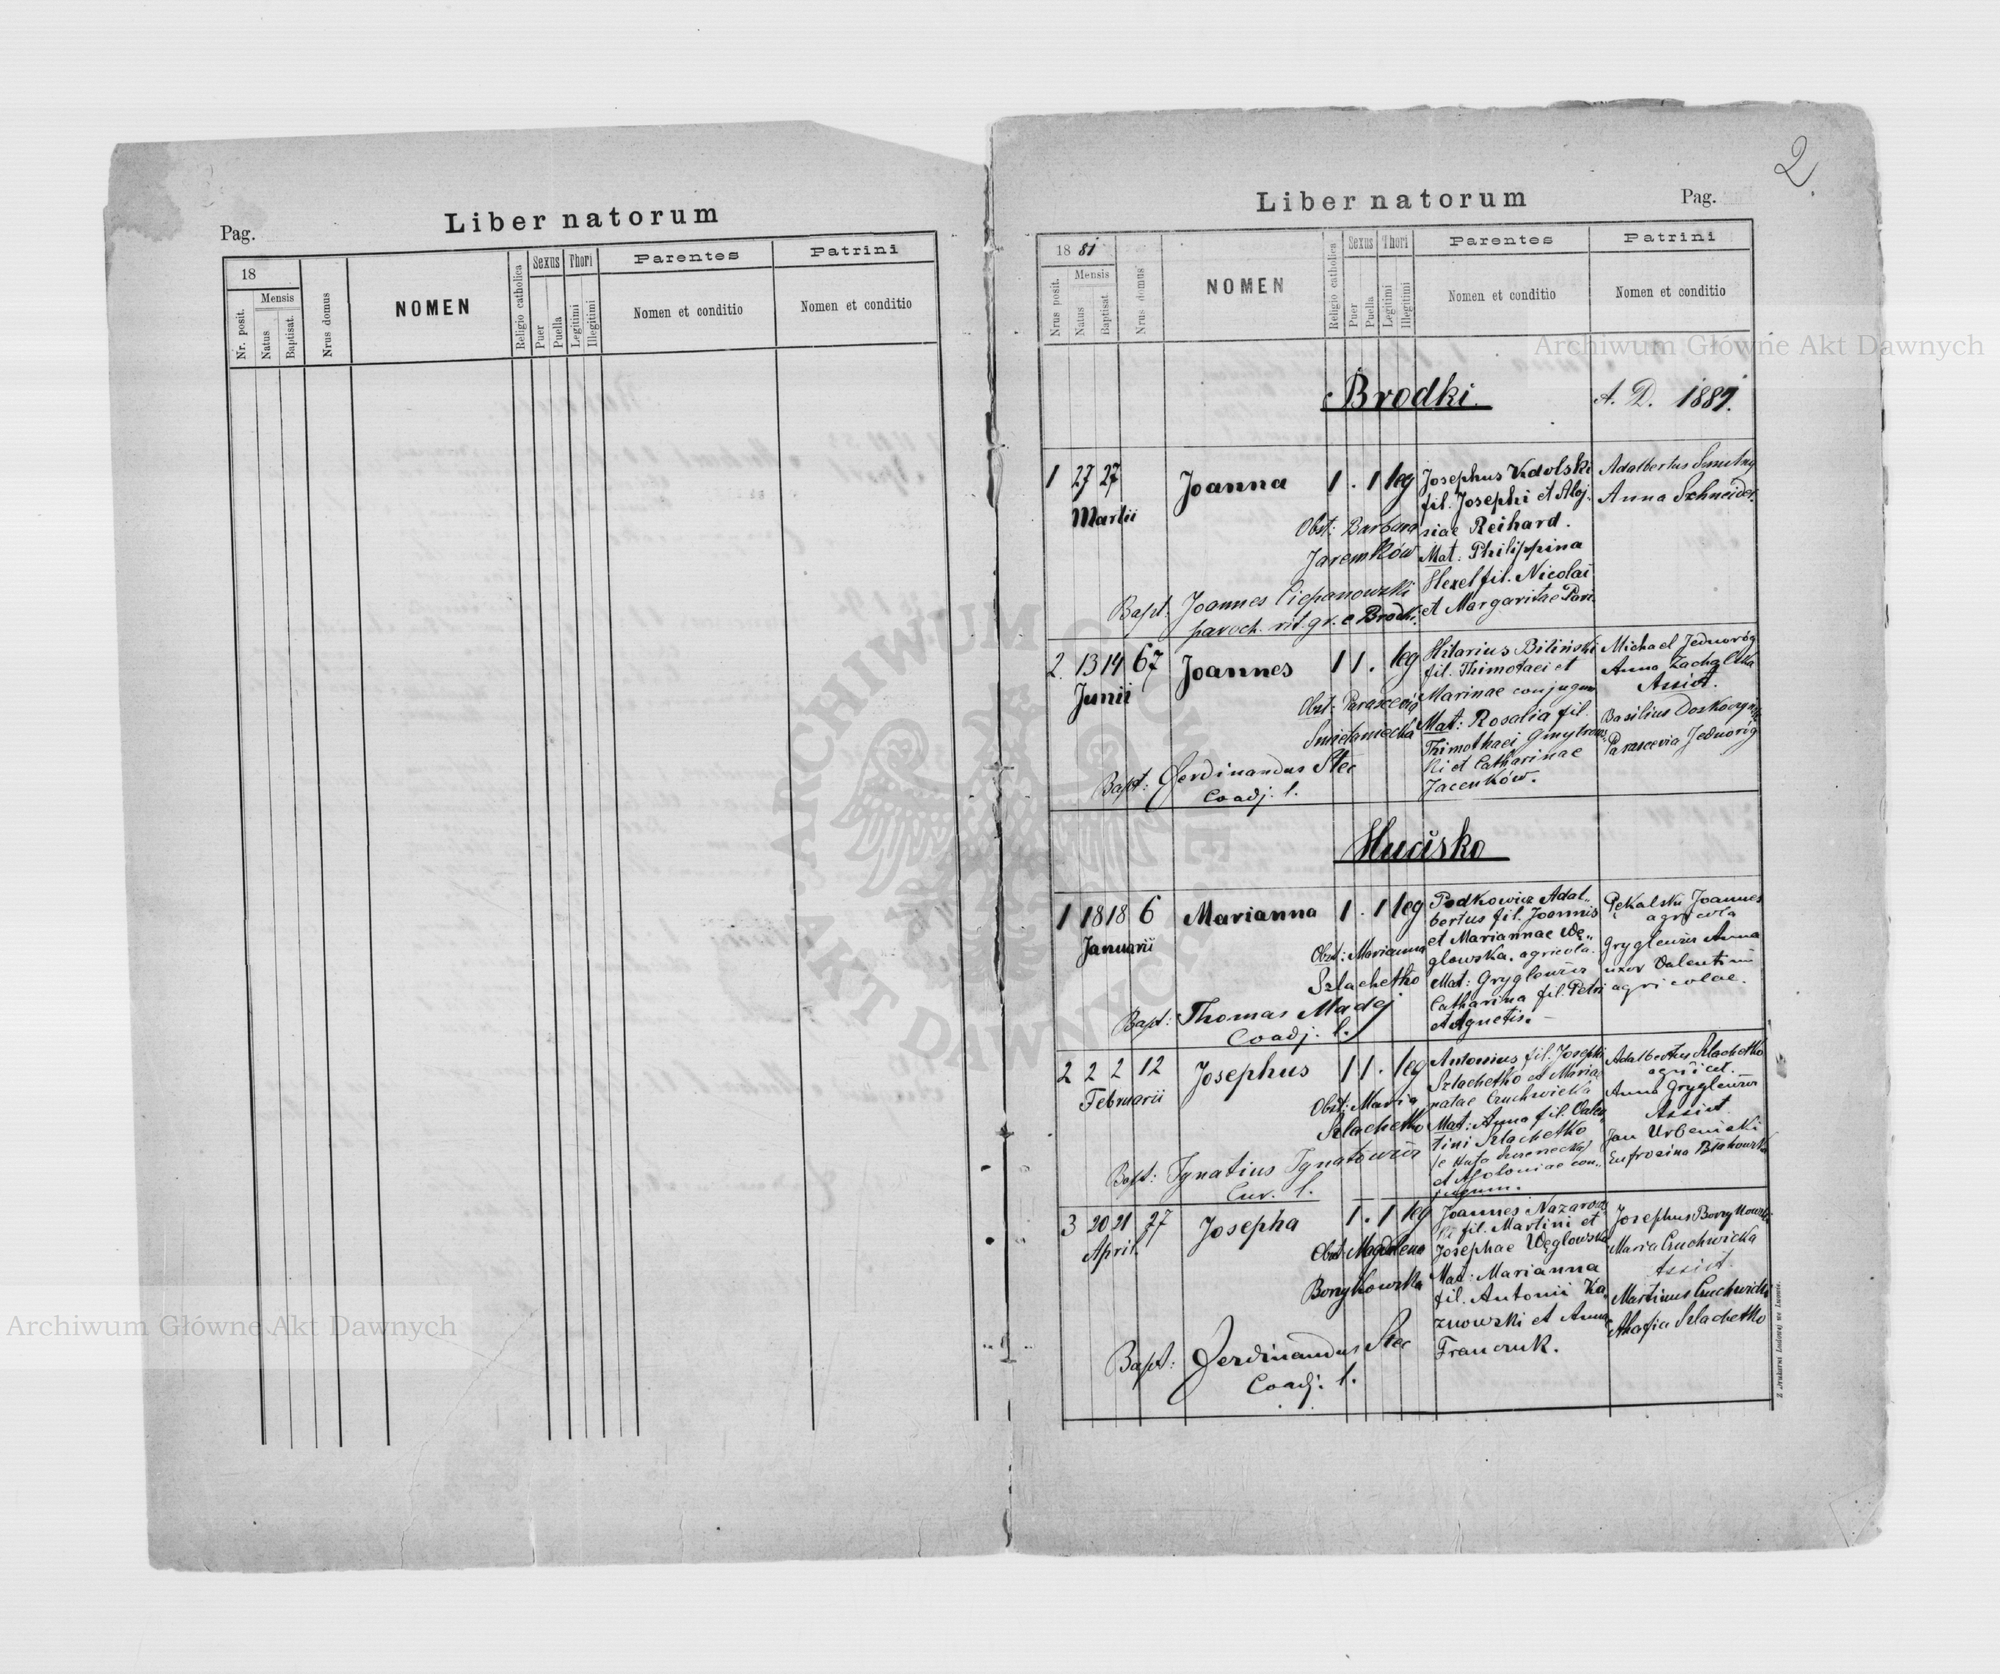 2.
Liber natorum
Pag.
18
Parentes
Patrini
Sexus
Thori
Mensis
Nr. posit.
Natus
Baptisat.
Nrus domus
NOMEN
Religio catholica
Puer
Puella
Legitimi
Illegitimi
Nomen et conditio
Nomen et conditio
Liber natorum
Pag.
18 81
Sexus
Thori
Parentes
Patrini
Mensis
Nrus posit.
Natus
Baptisat.
Nrus domus
NOMEN
Religio catholica
Puer
Puella
Legitimi
Illegitimi
Nomen et conditio
Nomen et conditio
Archiwum Główne Akt Dawnych
Brodki
A. D. 1881.
1 27 27
Martii
Joanna
1 . 1 leg
Obst: Barbara
Jaremków
Bapt: Joannes Ciepanowski
paroch. rit. gr. e Brodki.
Josephus
fil. Josephi et Aloj-
siae Reihard.
Mat: Philippina
Hezel fil. Nicolai
et Margaritae
Adalbertus
Anna Schneider.
2. 13 14 67
Junii
Joannes
1 1 . leg
Obst: Parascevia
Smietaniecka
Bapt: Ferdinandus Stec
Coadj. l.
Hilarius Biliński
fil. Thimotaei et
Marinae conjugum
Mat: Rosalia fil.
Thimothaei
ki et Catharinae
Jacenków.
Michael Jednoróg
Anna
Assist.
Basilius
Parascevia Jednoróg
Hucisko
1 18 18 6
Januarii
Marianna
1 . 1 leg
Obst: Marianna
Szlachetko
Bapt: Thomas Madej
Coadj. l.
Podkowicz Adal-
bertus fil. Joannis
et Mariannae Wę-
glowska. agricola.
Mat: Gryglewicz
Catharina fil. Petri
et Agnetis. –
Pękalski Joannes
agricola
Gryglewicz Anna
uxor Valentini
agricolae.
2 2 2 12
Februarii
Josephus
1 1 . leg
Obst: Maria
Szlachetko
Bapt: Ignatius Ignatowicz
Cur. l.
Antonius fil. Josephi
Szlachetko et Maria
natae Czuchwicka
Mat: Anna fil. Valen
tini Szlachetko
et Apoloniae con-
jugum.
Adalbertus Szlachetko
agricol.
Anna Gryglewicz
Assist.
Jan Urbenicki
Eufrosina
3 20 21 27
April.
Josepha
1 . 1 leg
Obst: Magdalena
Borzykowska
Bapt: Ferdinandus Stec
Coadj. l.
Joannes
fil. Martini et
Josephae Węglowska
Mat: Marianna
fil. Antonii Ka
znowski et Annae
Franczuk.
Josephus Borzykowski
Maria Czuchwicka
Assist.
Martinus Czuchwicki
Szlachetko
Z drukarni Ludowej we Lwowie.
Archiwum Główne Akt Dawnych
ARCHIWUM GŁÓWNE AKT DAWNYCH